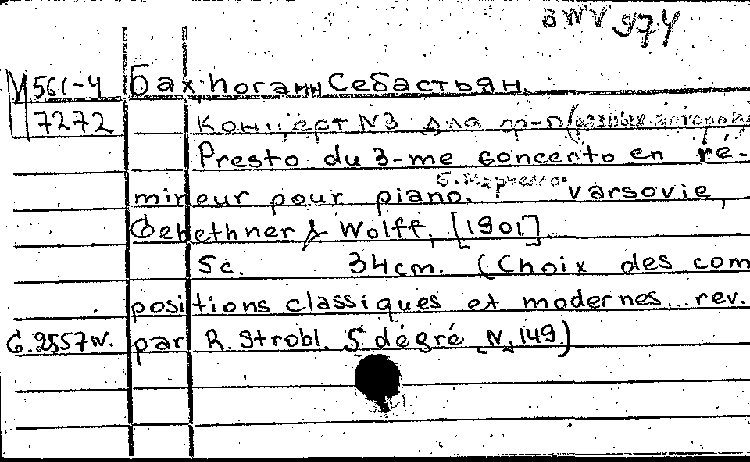 BWV 974
М 561-4 Бах, Иоганн Себастьян.
7272 Концерт №3 для ф-п
Presto du 3-me concerto en ré-
mineur pour piano. Varsovie,
Gebethner & Wolff, [1901]
5c. 34cm. (Choix des com
positions classiques et modernes rev.
G.2557W. par R. Strobl. 5 degré N. 149)